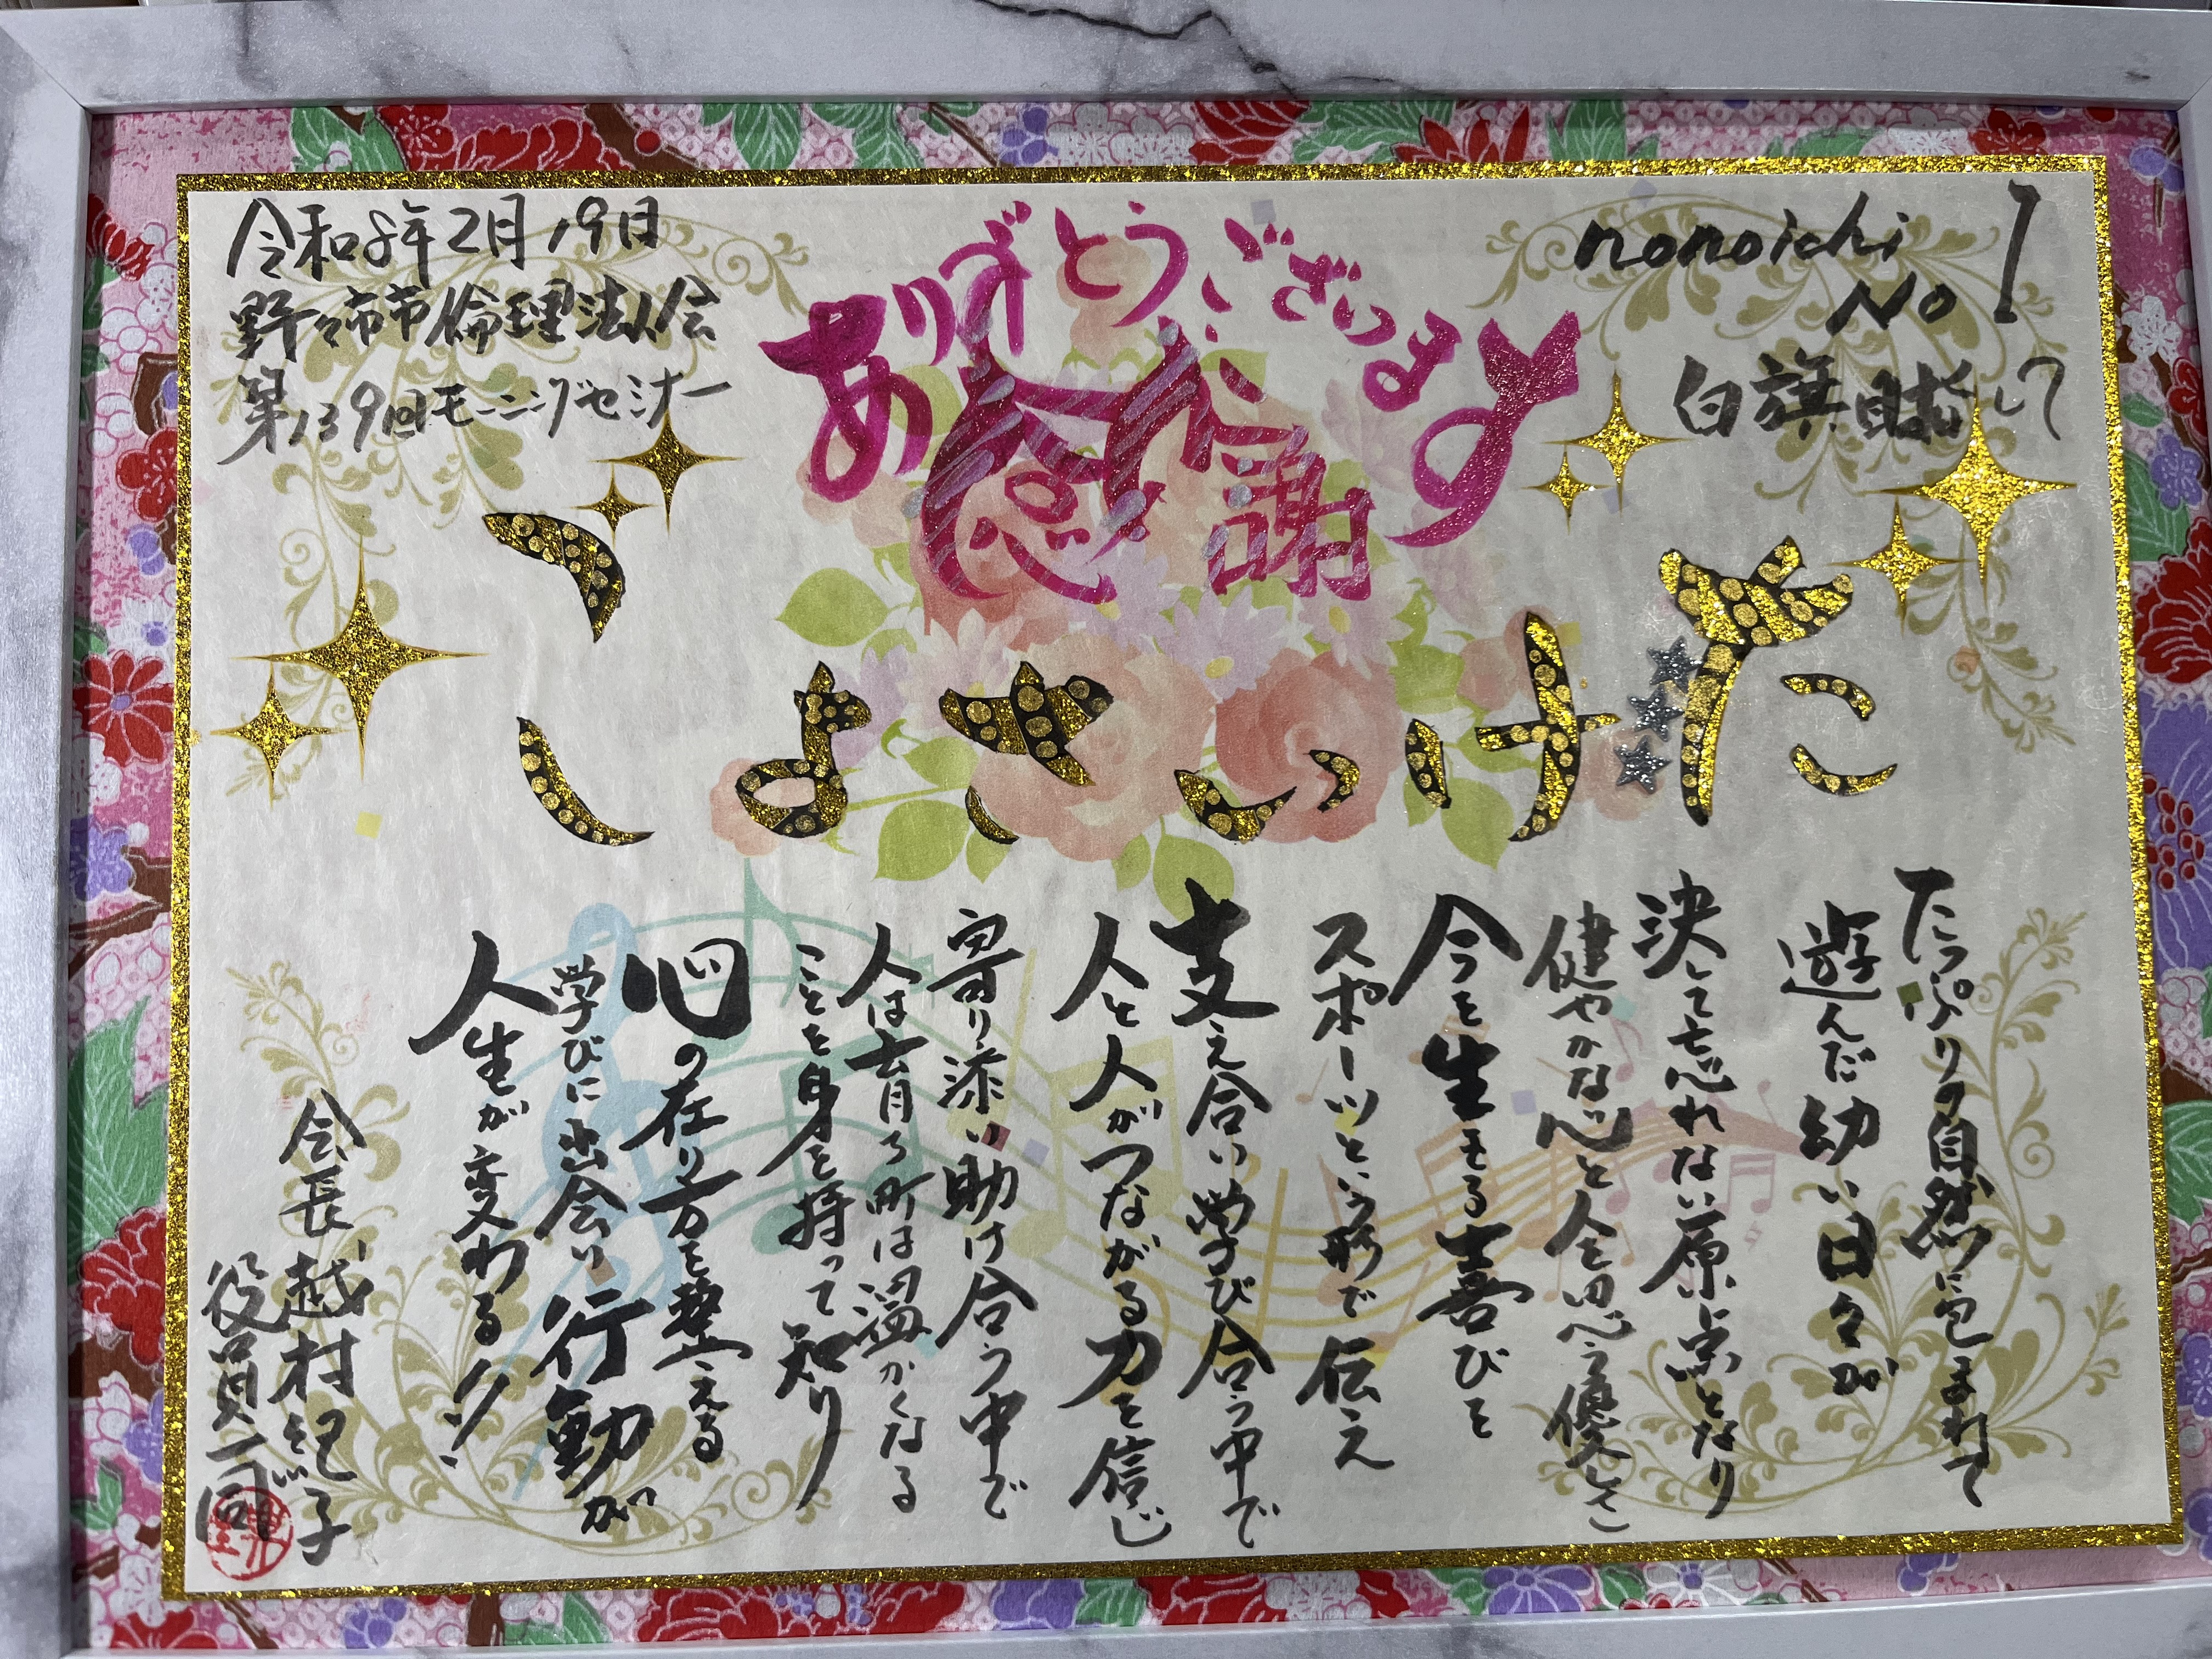 令和8年2月19日
野々市市倫理法人会
第139回モーニングセミナー
ありがとうございます
感謝
nonoichi
No 1
白旗目指して
たけいさよこ
たっぷりの自然に包まれて
遊んだ幼い日々が
決して忘れない原点となり
健やかな心と人を思う優しさ
今を生きる喜びを
スポーツという形で伝え
支え合い学び合う中で
人と人がつながる力を信じ
寄り添い助け合う中で
人は育ち町は温かくなる
ことを身を持って知り
心の在り方を整える
学びに出会い行動が
人生が変わる
会長 越村紀子
役員一同